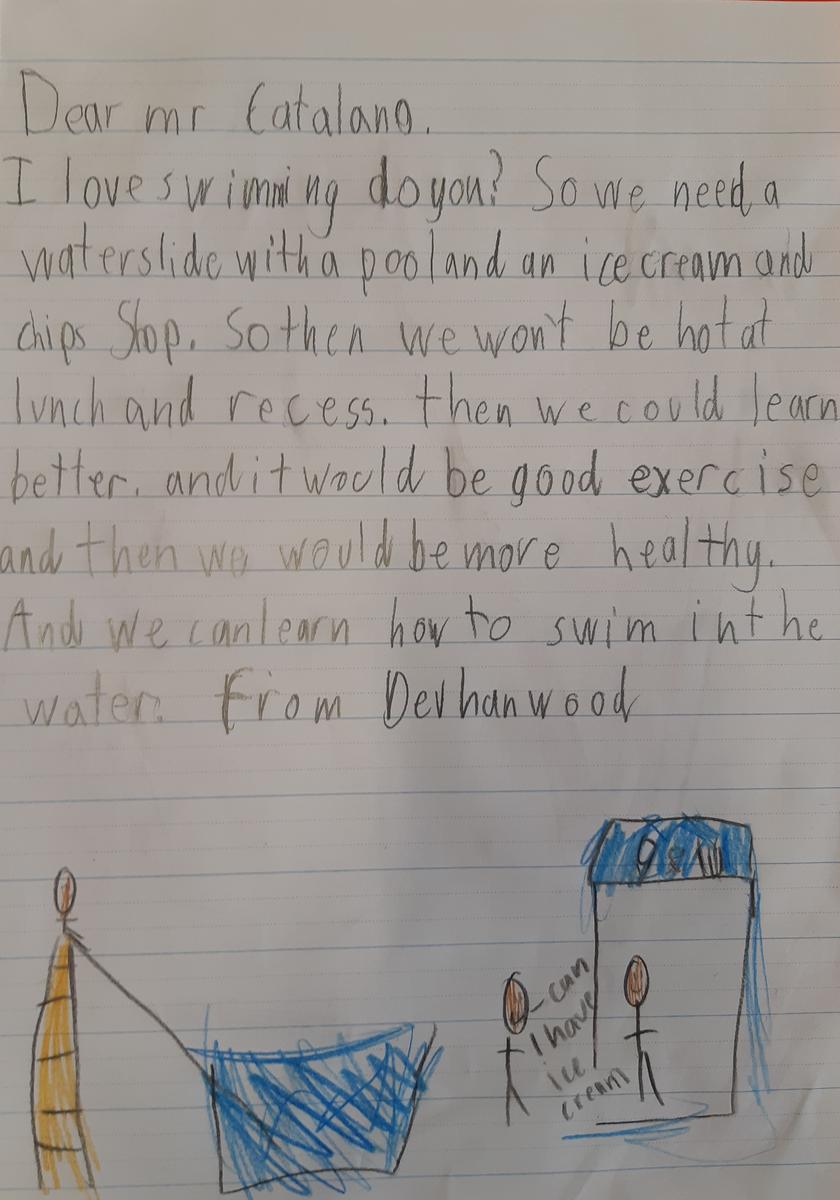 Dear mr Catalano.
I love swimming do you? So we need a
waterslide with a pool and an ice cream and
chips Stop. So then we won't be hot at
lunch and recess. then we could learn
better. and it would be good exercise
and then we would be more healthy.
And we can learn how to swim in the
water. From Devhanwood
can
I have
ice
cream